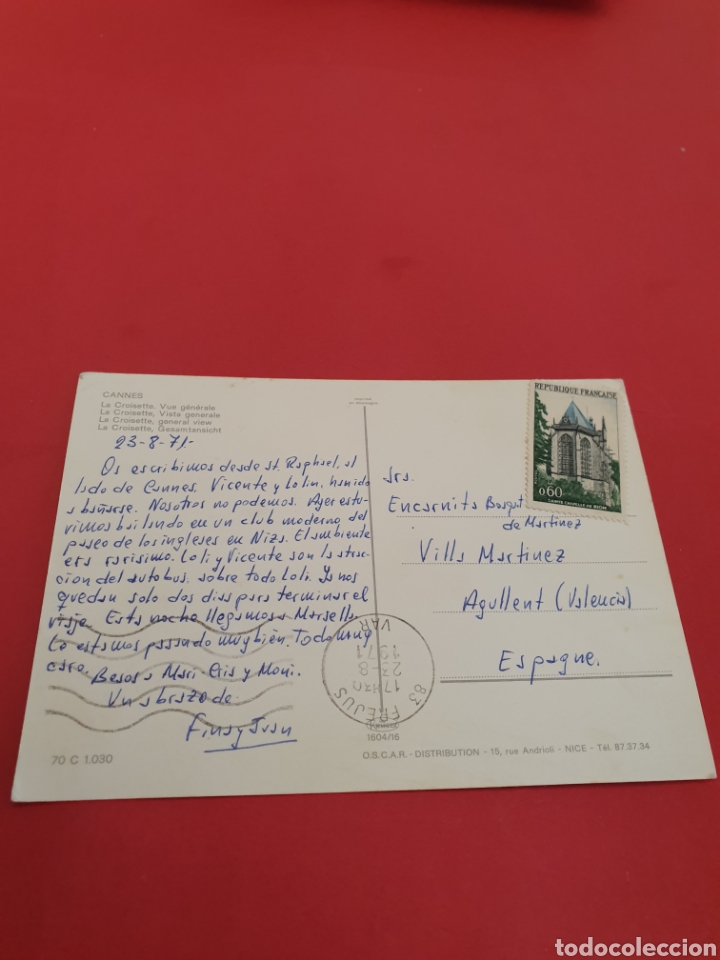 CANNES
La Croisette. Vue générale
La Croisette, Vista generale
La Croisette, general view
La Croisette, Gesamtansicht
23-8-71-
Os escribimos desde st. Raphael, al
lado de Cannes. Vicente y Lolin, han ido
a bañarse. Nosotros no podemos. Ayer estu-
vimos bailando en un club moderno del
paseo de los ingleses en Niza. El ambiente
era rarisimo. Loli y Vicente son la atrac-
cion del autobus. sobre todo Loli. Ya nos
quedan solo dos dias para terminar el
viaje. Esta noche llegamos a Marsella
Lo estamos pasando muy bien. Todo muy
caro.
Besos a Mari-Cris y Moni.
Un abrazo de
Fina y Juan
70 C 1.030
REPUBLIQUE FRANÇAISE
0,60
SAINTE CHAPELLE DE RIOM
Sra.
Encarnita
de Martinez
Villa Martinez
Agullent (Valencia)
Espagne.
83 FREJUS
17H30
23-8
1971
VAR
1604/16
O.S.C.A.R. - DISTRIBUTION - 15, rue Andrioli - NICE - Tél. 87.37.34
todocoleccion